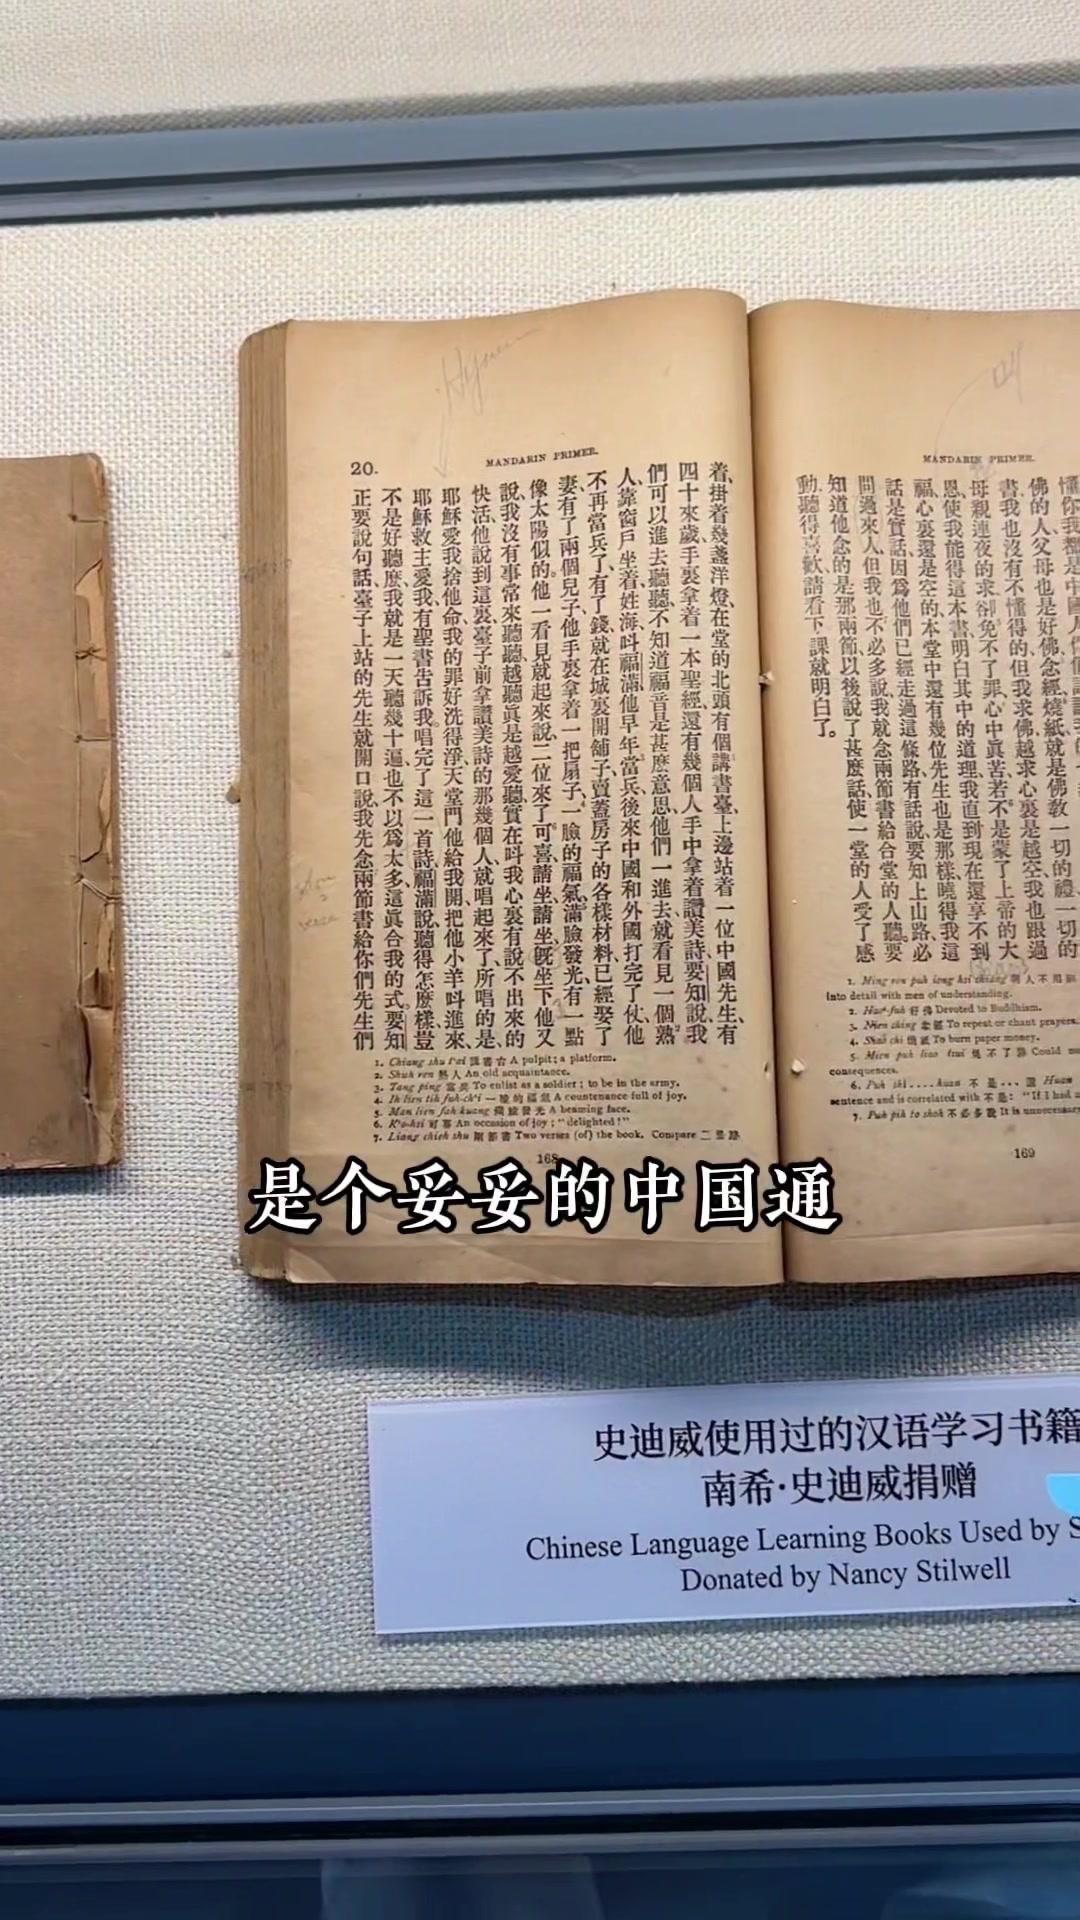 20.
MANDARIN PRIMER.
着、掛着幾盞洋燈、在堂的北頭有個講書臺、上邊站着一位中國先生、有
四十來歲、手裏拿着一本聖經、還有幾個人手中拿着讚美詩、要知說、我
們可以進去聽聽、不知道福音是甚麽意思、他們一進去、就看見一個熟
人、靠窗戶坐着、姓海、叫福滿、他早年當兵、後來中國和外國打完了仗、他
不再當兵了、有了錢、就在城裏開舖子、賣蓋房子的各樣材料、已經娶了
妻、有了兩個兒子、他手裏拿着一把扇子、一臉的福氣、滿臉發光、有一點
像太陽似的、他一看見就起來說、二位來了、可喜、請坐、請坐、旣坐下、他又
說、我沒有事常來聽聽、越聽眞是越愛聽、實在叫我心裏有說不出來的
快活、他說到這裏、臺子前拿讚美詩的那幾個人、就唱起來了、所唱的是、
耶穌愛我捨他命、我的罪好洗得淨、天堂門他給我開、把他小羊叫進來、
耶穌救主愛我、有聖書告訴我。唱完了這一首詩、福滿說、聽得怎麽樣、豈
不是好聽麽、我就是一天聽幾十遍、也不以爲太多、這眞合我的式、要知
正要說句話、臺子上站的先生就開口說、我先念兩節書給你們先生們
1. Chiang shu t'ai 講書台 A pulpit; a platform.
2. Shuh ren 熟人 An old acquaintance.
3. Tang ping 當兵 To enlist as a soldier; to be in the army.
4. Ih lien tih fuh-ch'i 一臉的福氣 A countenance full of joy.
5. Man lien fah kuang 滿臉發光 A beaming face.
6. K'o-hsi 可喜 An occasion of joy; "delighted!"
7. Liang chieh shu 兩節書 Two verses (of) the book. Compare 二里路
168
MANDARIN PRIMER.
佛的人、父母也是好佛、念經、燒紙、就是佛教一切的禮、一切的
書、我也沒有不懂得的、但我求佛、越求心裏是越空、我也跟過
母親連夜的求、卻免不了罪、心中眞苦、若不是蒙了上帝的大
恩、使我能得這本書、明白其中的道理、我直到現在還享不到
福、心裏還是空的、本堂中還有幾位先生、也是那樣、曉得我這
話是實話、因爲他們已經走過這條路、有話說、要知上山路、必
問過來人、但我也不必多說、我就念兩節書給合堂的人聽。要
知道他念的是那兩節、以後說了甚麽話、使一堂的人受了感
動、聽得喜歡、請看下課就明白了。
into detail with men of understanding.
2. Hao-fuh 好佛 Devoted to Buddhism.
3. Nien ching 念經 To repeat or chant prayers.
4. Shao chi 燒紙 To burn paper money.
consequences.
169
是个妥妥的中国通
史迪威使用过的汉语学习书籍
南希·史迪威捐赠
Chinese Language Learning Books Used by S
Donated by Nancy Stilwell